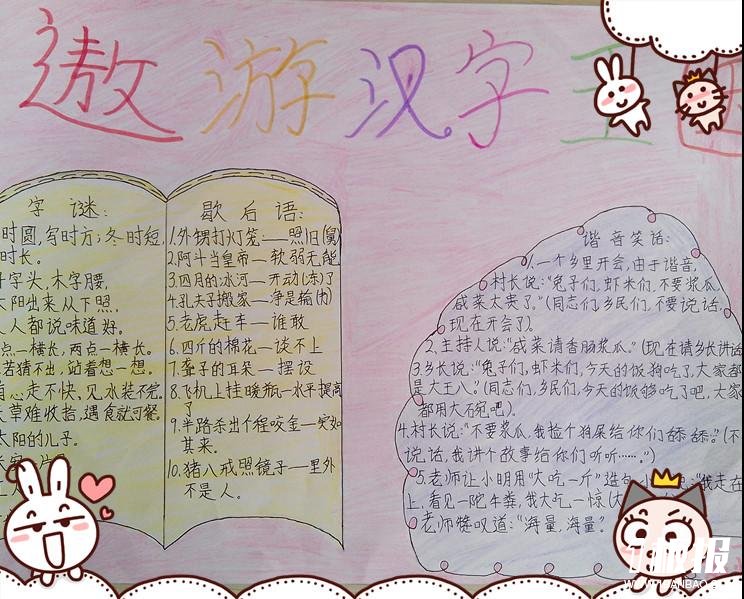 遨游汉字王国
字谜：
时圆，写时方；冬时短，
时长。
字头，木字腰，
太阳出来从下照，
人人都说味道好。
点一横长，两点一横长。
若猜不出，站着想一想。
有心走不快，见水装不完，
草难收拾，遇食就可餐。
太阳的儿子。
歇后语：
1.外甥打灯笼：——照旧(舅)
2.阿斗当皇帝——软弱无能
3.四月的冰河——开动(冻)了
4.孔夫子搬家——净是输(书)
5.老虎赶车——谁敢
6.四斤的棉花——谈不上
7.聋子的耳朵——摆设
8.飞机上挂暖瓶——水平提高
了
9.半路杀出个程咬金——突如
其来。
10.猪八戒照镜子——里外
不是人。
谐音笑话：
1.一个乡里开会，由于谐音，
村长说：“兔子们，虾米们，不要浆瓜，
咸菜太贵了。”(同志们，乡民们，不要说话，
现在开会了)。
2.主持人说：“咸菜请香肠浆瓜。”(现在请乡长讲话
3.乡长说：“兔子们，虾米们，今天的饭狗吃了，大家都
是大王八。(同志们，乡民们，今天的饭够吃了吧，大家
都用大碗吧)。
4.村长说：“不要浆瓜，我捡个狗屎给你们舔舔。”(不
说话，我讲个故事给你们听听……。”)
5.老师让小明用“大吃一斤”造句，小 说：“我走在
上，看见一陀牛粪，我大吃一惊(
老师赞叹道：“海量，海量。”